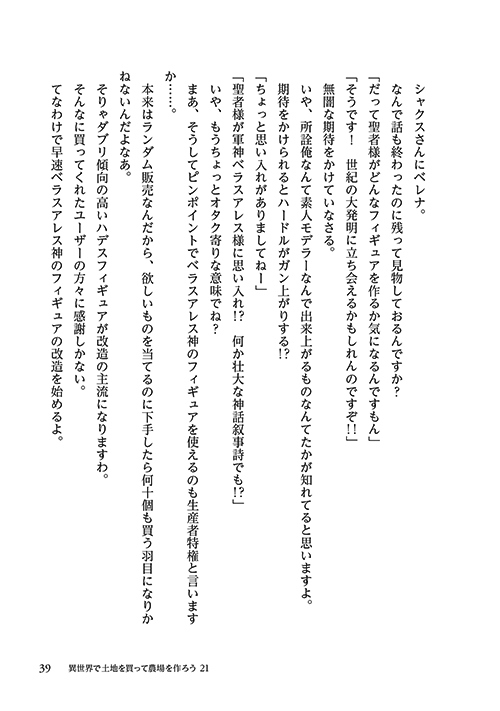 シャクスさんにベレナ。
なんで話も終わったのに残って見物しておるんですか？
「だって聖者様がどんなフィギュアを作るか気になるんですもん」
「そうです！　世紀の大発明に立ち会えるかもしれんのですぞ!!」
無闇な期待をかけていなさる。
いや、所詮俺なんて素人モデラーなんで出来上がるものなんてたかが知れてると思いますよ。
期待をかけられるとハードルがガン上がりする!?
「ちょっと思い入れがありましてねー」
「聖者様が軍神ベラスアレス様に思い入れ!?　何か壮大な神話叙事詩でも!?」
いや、もうちょっとオタク寄りな意味でね？
まあ、そうしてピンポイントでベラスアレス神のフィギュアを使えるのも生産者特権と言います
か……。
本来はランダム販売なんだから、欲しいものを当てるのに下手したら何十個も買う羽目になりか
ねないんだよなあ。
そりゃダブリ傾向の高いハデスフィギュアが改造の主流になりますわ。
そんなに買ってくれたユーザーの方々に感謝しかない。
てなわけで早速ベラスアレス神のフィギュアの改造を始めるよ。
39　異世界で土地を買って農場を作ろう 21